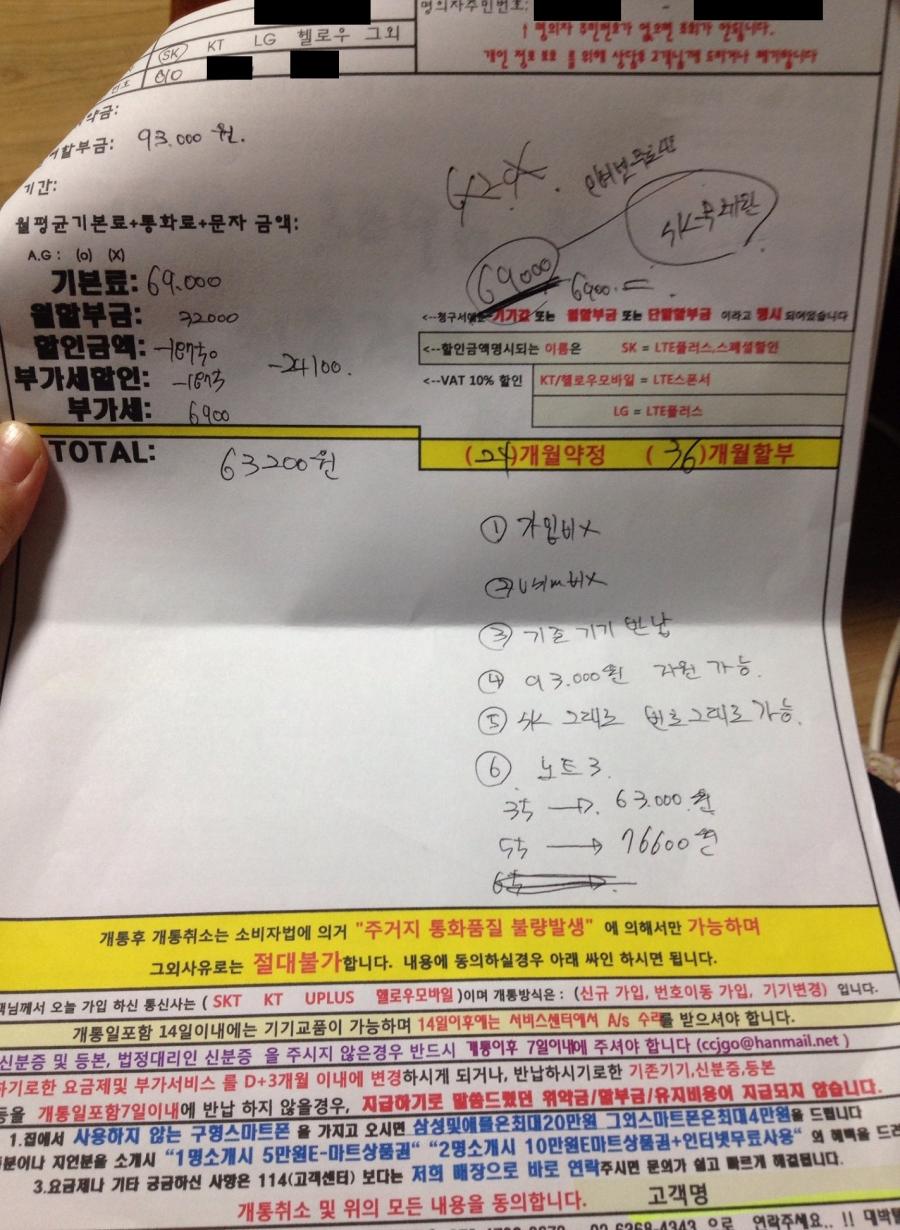 명의자주민번호:
↑ 명의자 주민번호가 없으면 조회가 안됩니다.
개인 정보 보호 를 위해 상담후 고객님께 드리거나 폐기합니다
SK KT LG 헬로우 그외
010
약금:
할부금: 93.000 원.
기간:
월평균기본료+통화료+문자 금액:
A.G : (o) (X)
기본료: 69.000
월할부금: 32000
할인금액: -18750
부가세할인: -1875
-24100.
부가세: 6900
TOTAL: 63200원
SK
69000
6900.
<--청구서에는 기기값 또는 월할부금 또는 단말할부금 이라고 명시 되어있습니다
<--할인금액명시되는 이름은 SK = LTE플러스,스페셜할인
<--VAT 10% 할인 KT/헬로우모바일 = LTE스폰서
LG = LTE플러스
(24)개월약정 (36)개월할부
① 가입비X
② Usim비X
③ 기존 기기 반납
④ 93.000원 지원 가능.
⑤ SK 그대로 번호그대로 가능.
⑥ 노트3.
35 → 63.000원
55 → 76600원
개통후 개통취소는 소비자법에 의거 "주거지 통화품질 불량발생" 에 의해서만 가능하며
그외사유로는 절대불가합니다. 내용에 동의하실경우 아래 싸인 하시면 됩니다.
객님께서 오늘 가입 하신 통신사는 ( SKT KT UPLUS 헬로우모바일 )이며 개통방식은 : (신규 가입, 번호이동 가입, 기기변경) 입니다.
개통일포함 14일이내에는 기기교품이 가능하며 14일이후에는 서비스센터에서 A/s 수리를 받으셔야 합니다.
신분증 및 등본, 법정대리인 신분증 을 주시지 않은경우 반드시 개통이후 7일이내에 주셔야 합니다 (ccjgo@hanmail.net )
하기로한 요금제및 부가서비스 를 D+3개월 이내에 변경하시게 되거나, 반납하시기로한 기존기기,신분증,등본
등을 개통일포함7일이내에 반납 하지 않을경우, 지급하기로 말씀드렸던 위약금/할부금/유지비용이 지급되지 않습니다.
1.집에서 사용하지 않는 구형스마트폰 을 가지고 오시면 삼성및애플은최대20만원 그외스마트폰은최대4만원을 드립니다
분이나 지연분을 소개시 “1명소개시 5만원E-마트상품권“ “2명소개시 10만원E마트상품권+인터넷무료사용“ 의 혜택을 드려
3.요금제나 기타 궁금하신 사항은 114(고객센터) 보다는 저희 매장으로 바로 연락주시면 문의가 쉽고 빠르게 해결됩니다.
개통취소 및 위의 모든 내용을 동의합니다. 고객명
02-6268-4343 으로 연락주세요.. !! 대박텔